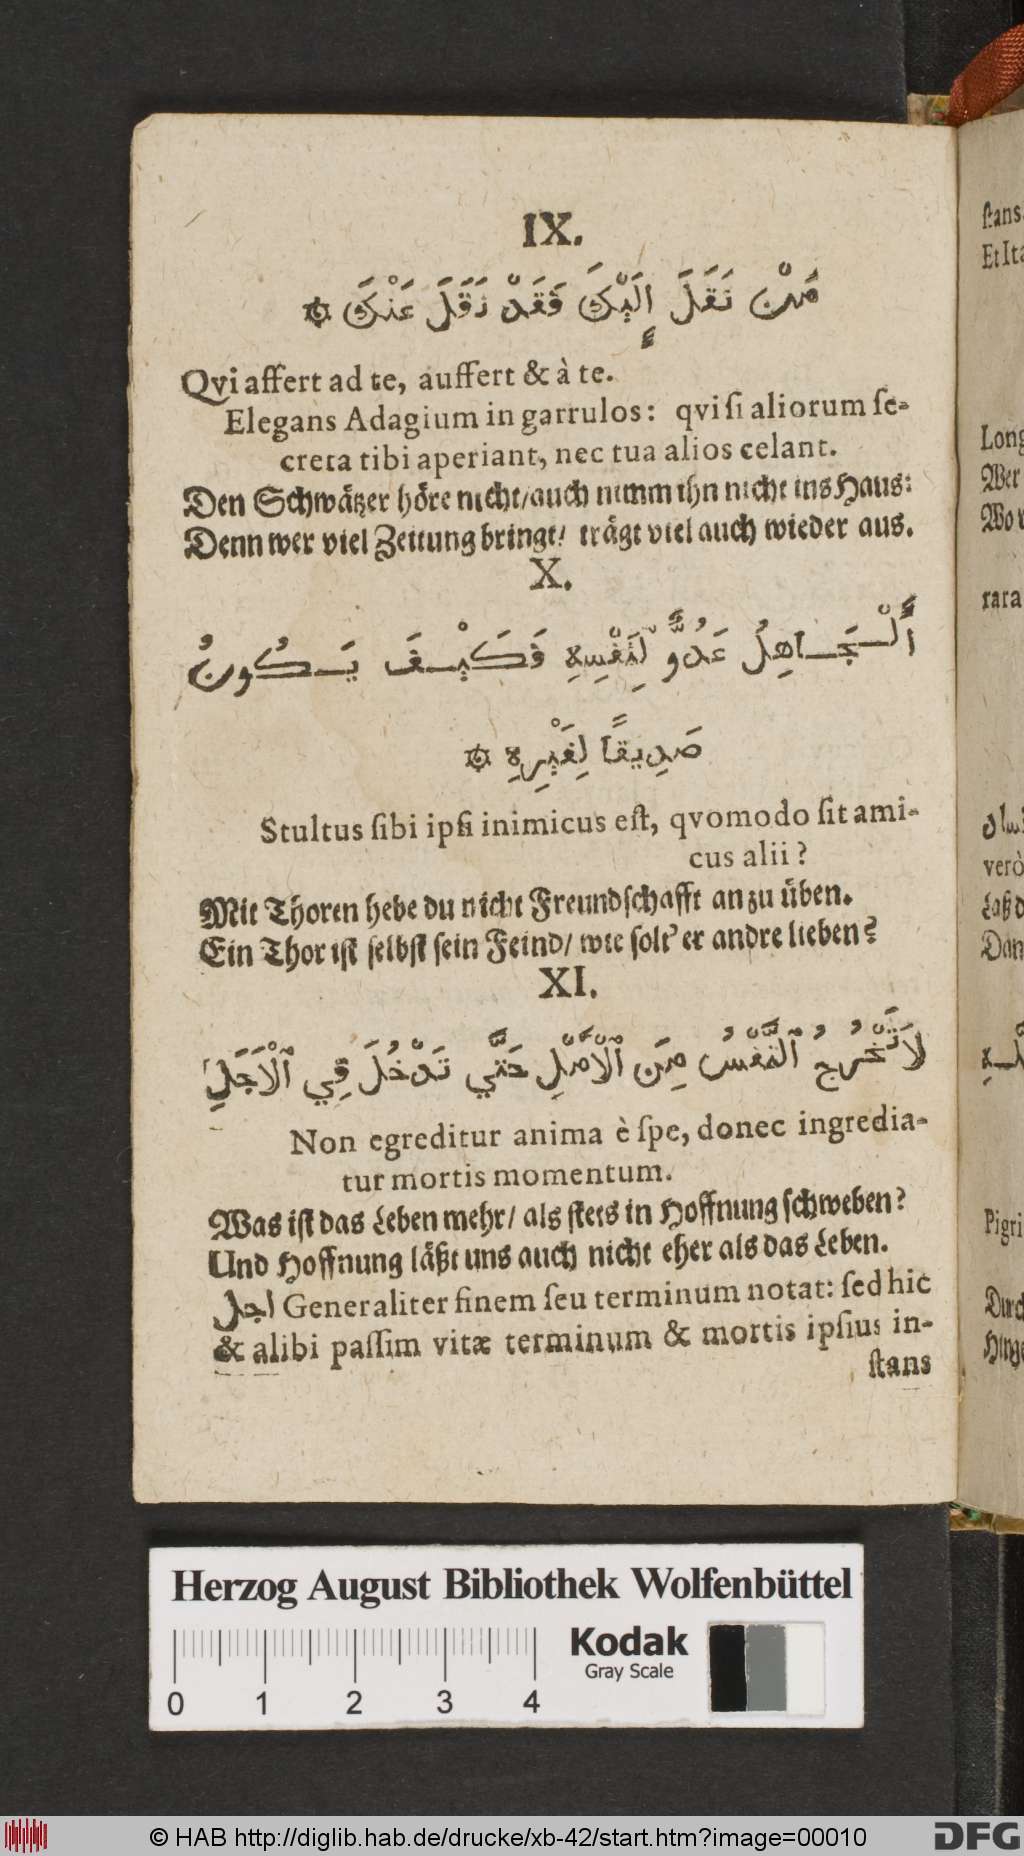 IX.
مَنْ نَقَلَ إِلَيْكَ فَقَدْ نَقَلَ عَنْكَ ۞
Qvi affert ad te, auffert & à te.
Elegans Adagium in garrulos: qvi si aliorum se-
creta tibi aperiant, nec tua alios celant.
Den Schwätzer höre nicht/auch nimm ihn nicht ins Haus:
Denn wer viel Zeitung bringt/ trägt viel auch wieder aus.
X.
أَلْجَاهِلُ عَدُوٌّ لِنَفْسِهِ فَكَيْفَ يَكُونُ
صَدِيقًا لِغَيْرِهِ ۞
Stultus sibi ipsi inimicus est, qvomodo sit ami-
cus alii?
Mit Thoren hebe du nicht Freundschafft an zu üben.
Ein Thor ist selbst sein Feind/ wie solt' er andre lieben?
XI.
لَا تَخْرُجُ ٱلنَّفْسُ مِنَ ٱلْأَمَلِ حَتَّي تَدْخُلَ فِي ٱلْأَجَلِ
Non egreditur anima è spe, donec ingredia-
tur mortis momentum.
Was ist das Leben mehr/ als stets in Hoffnung schweben?
Und Hoffnung läßt uns auch nicht eher als das Leben.
اجل Generaliter finem seu terminum notat: sed hic
& alibi passim vitæ terminum & mortis ipsius in-
stans
stans
Et Ita
Long
Wer
Wo
rara
verò
Laß d
Pigri
Durch
Herzog August Bibliothek Wolfenbüttel
Kodak
Gray Scale
0 1 2 3 4
© HAB http://diglib.hab.de/drucke/xb-42/start.htm?image=00010
DFG